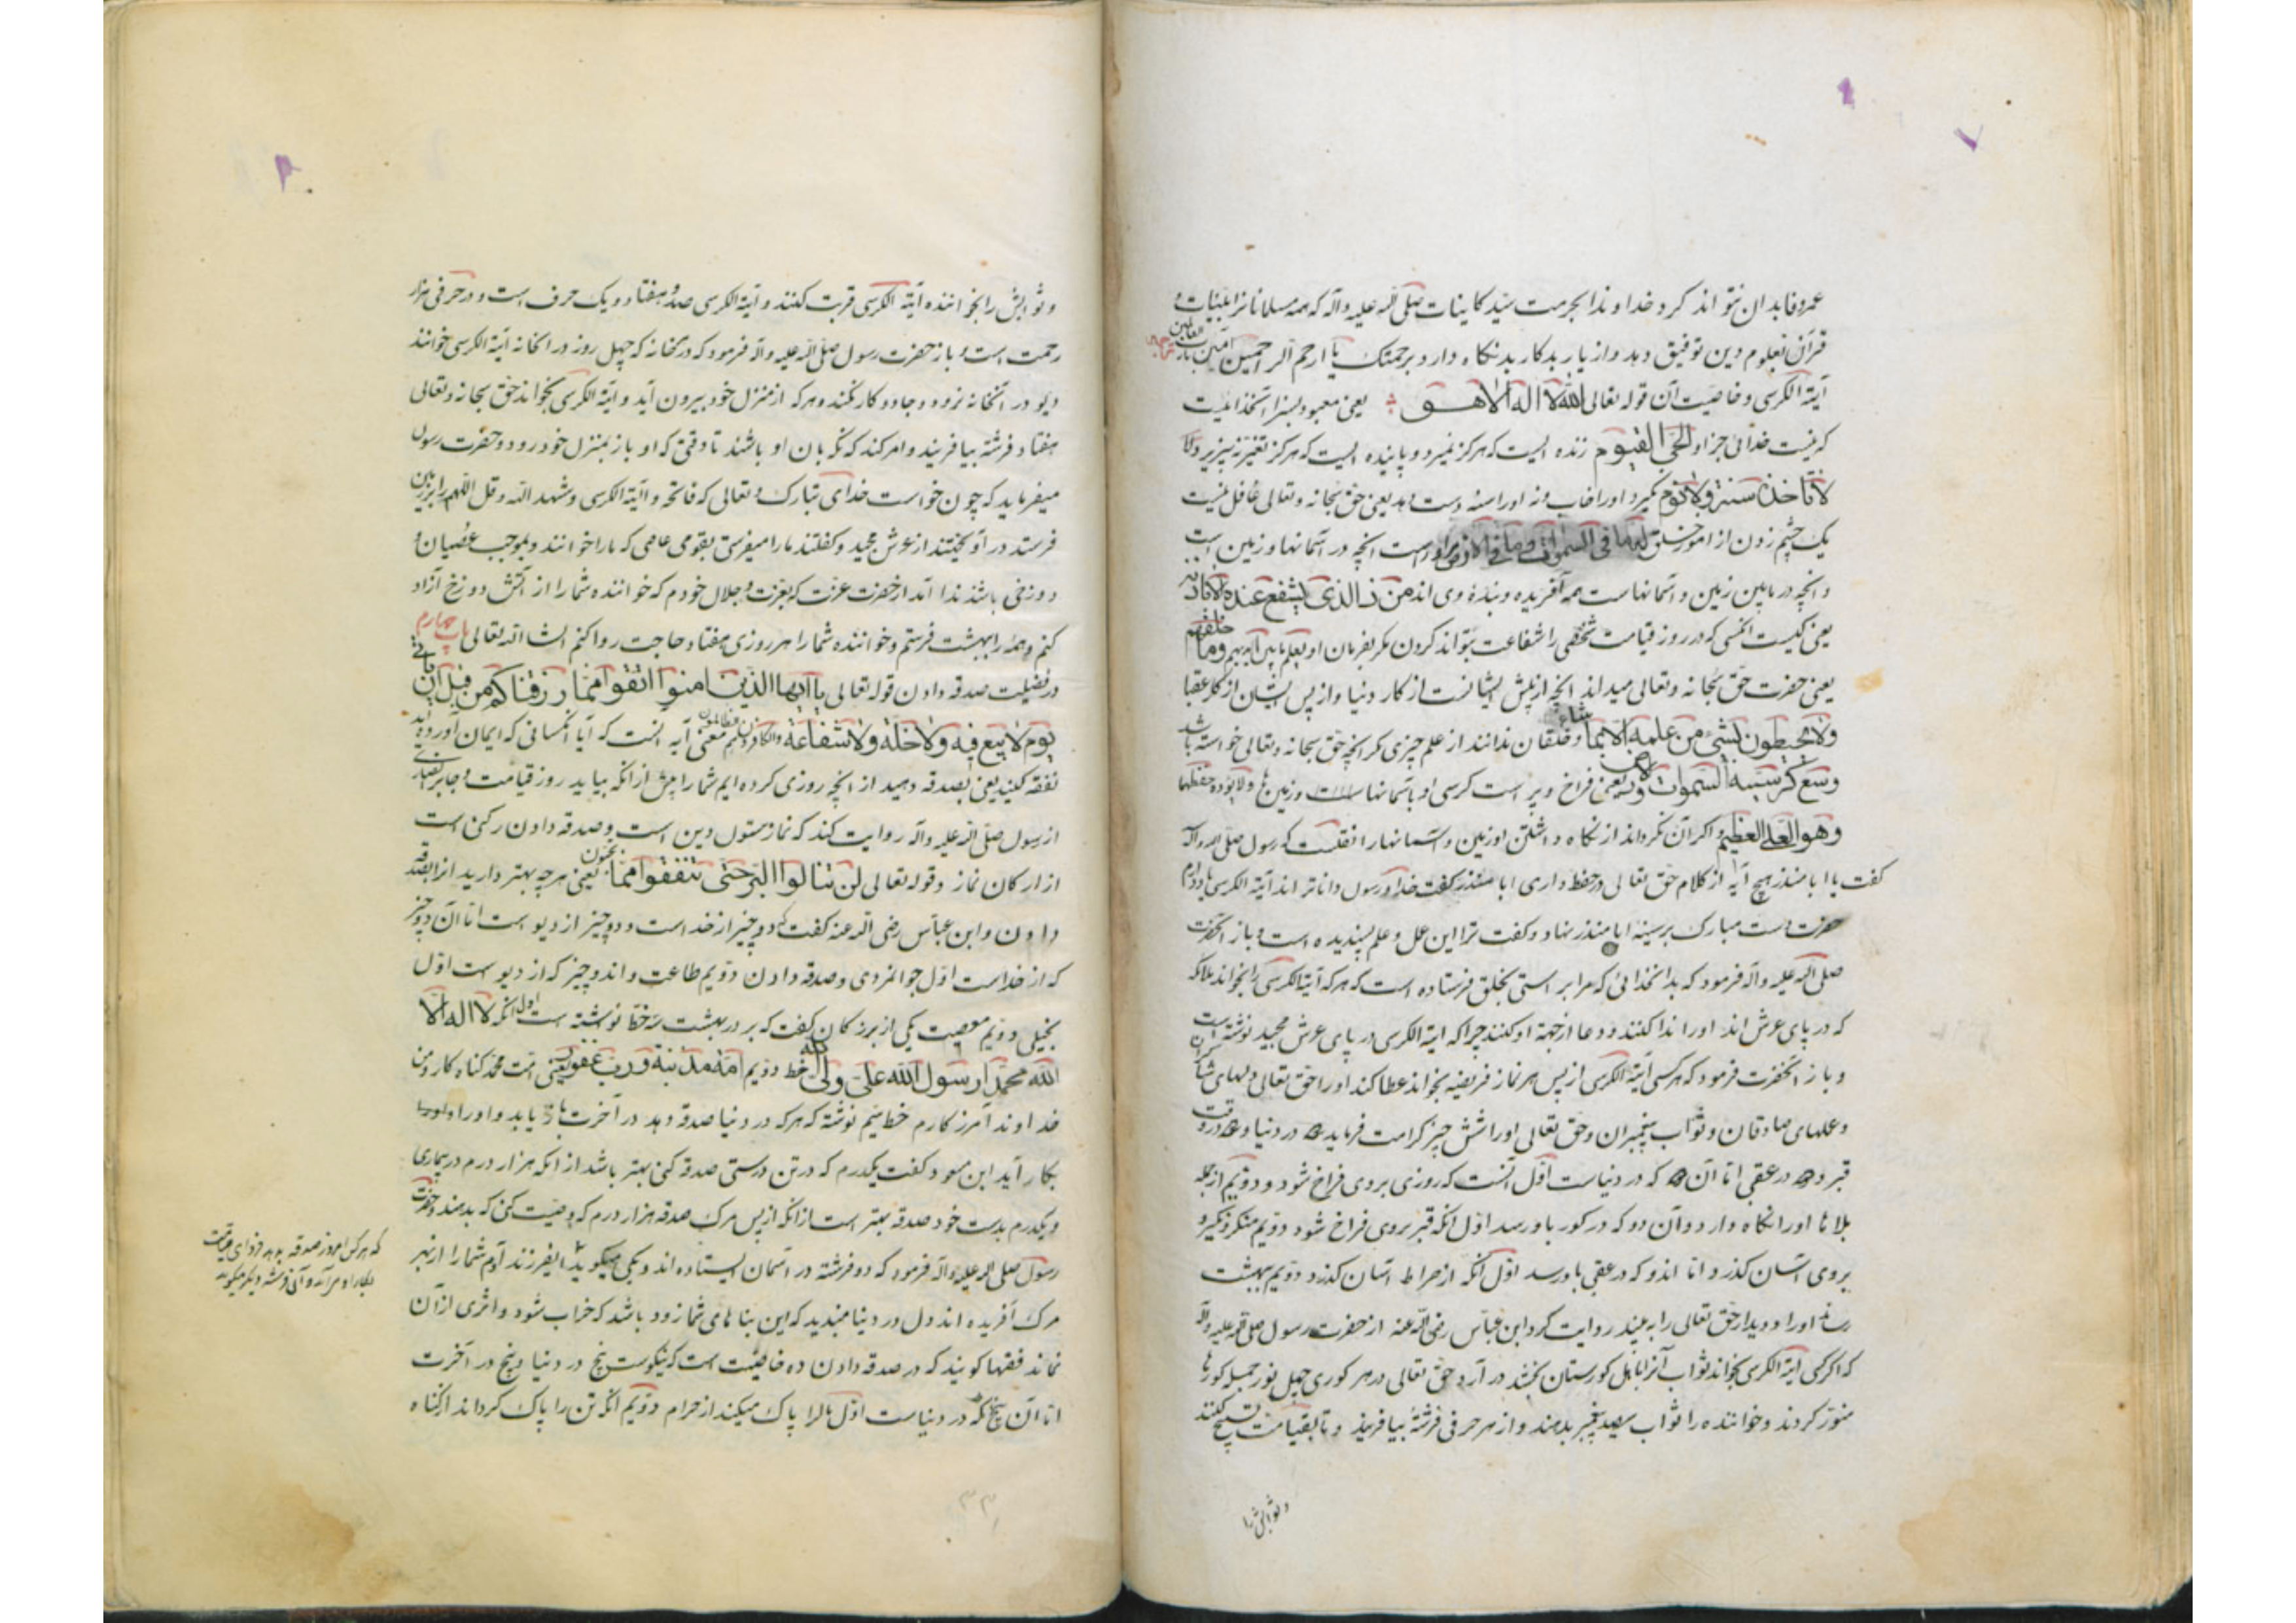 عمر وفا بدان نتواند کرد خداوندا بحرمت سید کاینات صلی الله علیه وآله که همه مسلمانانرا بلبنات و
قرآن تعلوم دین توفیق دهد واز یار بدکار بد نکاه دارد برحمتک یا ارحم الرّاحمین آمین یارب العالمین
آیة الکرسی وخاصیت آن قوله تعالی الله لا اله الا هو یعنی معبود بسزا
که نیست خدائی جز او الحی القیوم زنده ایست که هرکز نمیرد و پاینده ایست که هرکز تغیّر نپذیرد
لا تاخذه سنة ولا نوم نکیرد اورا خاب ونه اورا سنه دست دهد یعنی حق سبحانه وتعالی غافل نیست
یک چشم زدن از امور خلق له ما فی السموات وما فی الارض مراوراست انچه در آسمانها و زمین است
وانچه در مابین زمین و آسمانهاست همه آفریده وبندهٔ وی اند من ذا الذی یشفع عنده الا باذنه
یعنی کیست انکسی که در روز قیامت شخصی را شفاعت بتواند کردن مکر بفرمان او یعلم ما بین ایدیهم وما خلفهم
یعنی حضرت حق سبحانه وتعالی میداند انچه از پیش ایشانست از کار دنیا واز پس ایشان از کار عقبا
ولا یحیطون بشئ من علمه الا بما شاء وخلقان ندانند از علم چیزی مکر انچه حق سبحانه وتعالی خواسته باشد
وسع کرسیه السموات والارض یعنی فراخ و پر است کرسی او باسمانها وزمین ها ولا یؤده حفظهما
وهو العلی العظیم و اکران نکرداند از نکاه داشتن او زمین واسمانها را نقلست که رسول صلی الله وآله
کفت یا ابا منذر هیچ آیهٔ از کلام حق تعالی در حفظ داری ابا منذر کفت خدا ورسول داناتر اند آیة الکرسی یاد دارم
حضرت دست مبارک بر سینهٔ ابا منذر نهاد وکفت ترا این عل وعلم پسندیده است وباز آنحضرت
صلی الله علیه وآله فرمود که بدانخدائی که مرا براستی بخلق فرستاده است که هرکه آیة الکرسی را بخواند ملائکه
که در پای عرش اند اورا ندا کنند ودعا از جهة او کنند چرا که آیة الکرسی در پای عرش مجید نوشته است
وباز آنحضرت فرمود که هرکسی آیة الکرسی از پس هر نماز فریضه بخواند عطا کند اورا حق تعالی دلهای شاکران
وعملهای صادقان وثواب پیغمبران وحق تعالی اورا شش چیز کرامت فرماید در دنیا و در وقت
قبر و در عقبی اما آن که در دنیاست اول آنست که روزی بروی فراخ شود ودویم از جمله
بلاها اورا نکاه دارد وآن دو که در کور باورسد اول انکه قبر بروی فراخ شود دویم منکر ونکیر
بروی آسان کذرد اما اندو که در عقبی باورسد اول آنکه از صراط آسان کذرد دویم ببهشت
رسد اورا ودیدار حق تعالی را به بیند روایت کرد ابن عباس رضی الله عنه از حضرت رسول صلی الله علیه وآله
که اکر کسی آیة الکرسی بخواند ثواب آنرا باهل کورستان بخشد در آرد حق تعالی در هر کوری چهل نور جمله کورها
منور کردند وخواننده را ثواب سیصد پیغمبر بدهند واز هر حرفی فرشتهٔ بیافریند وتا بقیامت تسبیح کنند
وثوابش را
وثوابش را بخواننده آیة الکرسی قربت کنند وآیة الکرسی صد وهفتاد ویک حرف است ودر حرفی هزار
رحمت است وباز حضرت رسول صلی الله علیه وآله فرمود که در خانه که چهل روز در انخانه آیة الکرسی خوانند
دیو در آنخانه نرود وجادو کار نکند وهرکه از منزل خود بیرون آید وآیة الکرسی بخواند حق سبحانه وتعالی
هفتاد فرشته بیافریند وامر کند که نکهبان او باشند تا وقتی که او باز بمنزل خود رود وحضرت رسول
میفرماید که چون خواست خدای تبارک وتعالی که فاتحه وآیة الکرسی وشهد الله وقل اللهم را بر زمین
فرستد در آویختند از عرش مجید وکفتند مارا میفرستی بقومی عاصی که مارا خوانند وبموجب عصیان
دوزخی باشند ندا آمد از حضرت عزت که بعزت وجلال خودم که خواننده شما را از آتش دوزخ آزاد
کنم وهمه را ببهشت فرستم وخواننده شما را هر روزی هفتاد حاجت روا کنم انشا الله تعالی باب چهارم
در فضیلت صدقه دادن قوله تعالی یا ایها الذین امنوا انفقوا مما رزقناکم من قبل ان یاتی
یوم لا بیع فیه ولا خلة ولا شفاعة والکافرون هم الظالمون معنی آیه انست که آیا انکسانی که ایمان آورده اید
نفقه کنید یعنی بصدقه دهید از انچه روزی کرده ایم شما را پیش از انکه بیاید روز قیامت وجابر انصاری
از رسول صلی الله علیه وآله روایت کند که نماز ستون دین است وصدقه دادن رکنی است
از ارکان نماز وقوله تعالی لن تنالوا البر حتی تنفقوا مما تحبون یعنی هرچه بهتر دارید انرا بصدقه
دادن وابن عباس رضی الله عنه کفت که دو چیز از خداست ودو چیز از دیو است اما آن دو چیز
که از خداست اول جوانمردی وصدقه دادن دویم طاعت واندو چیز که از دیوست اول
بخیلی دویم معصیت یکی از بزرکان کفت که بر در بهشت سه خط نوشته است اول آنکه لا اله الا
الله محمد رسول الله علی ولی الله خط دویم امة مذنبة ورب غفور یعنی امت محمد کناه کار ومن
خداوند آمرزکارم خط سیم نوشته که هرکه در دنیا صدقه دهد در آخرت باز یابد واورا
بکار آید ابن مسعود کفت یکدرم که در تن درستی صدقه کنی بهتر باشد از انکه هزار درم در بیماری
ویکدرم بدست خود صدقه بهتر است از انکه از پس مرک صدقه هزار درم که وصیت کنی که بدهند وحضرت
رسول صلی الله علیه وآله فرمود که دو فرشته در آسمان ایستاده اند ویکی میکوید ایفرزند آدم شما را از بهر
مرک آفریده اند دل در دنیا مبندید که این بنا های شما زود باشد که خراب شود واثری از آن
نماند فقها کویند که در صدقه دادن ده خاصیت است که نیکوست پنج در دنیا وپنج در آخرت
اما آن پنج که در دنیاست اول مالرا پاک میکند از حرام دویم انکه تن را پاک کرداند از کناه
که هرکس امروز صدقه بدهد فردای قیامت
بکار او مرآید وآن فرشته دیکر میکوید